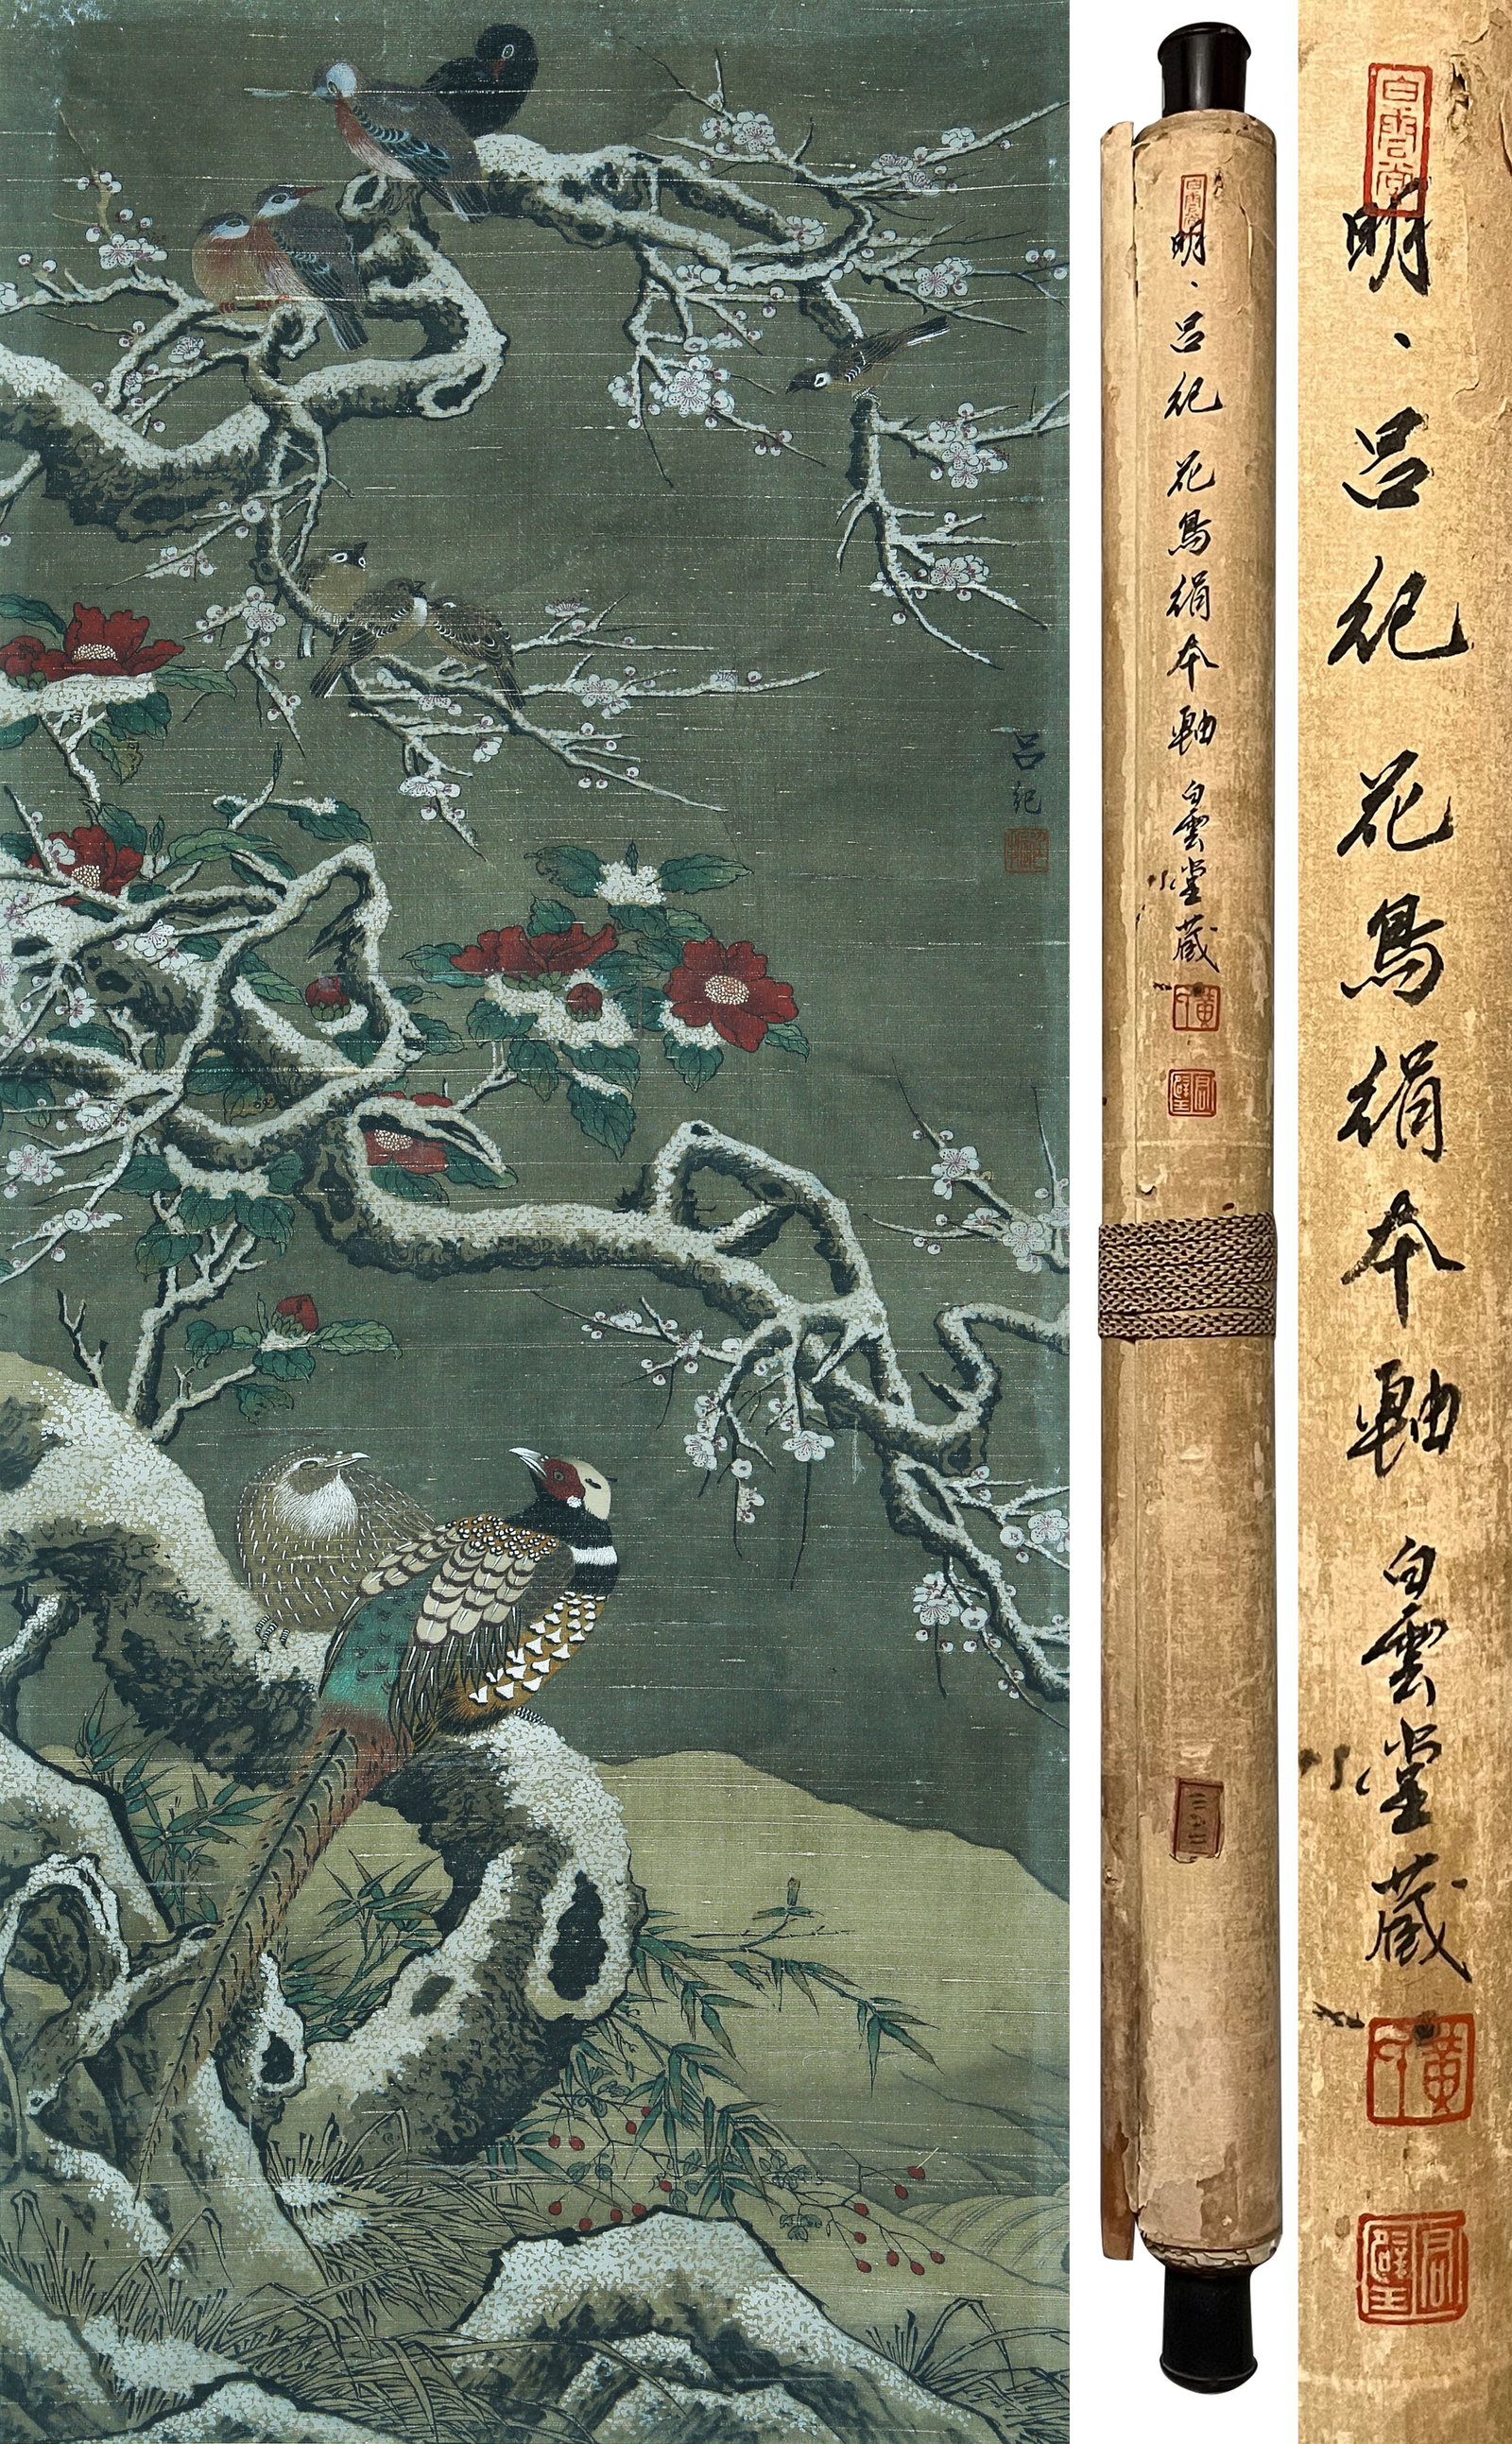 呂紀
明、呂紀花鳥絹本軸 白雲堂藏
白雲堂
明、呂紀花鳥絹本軸 白雲堂藏
黃
君璧